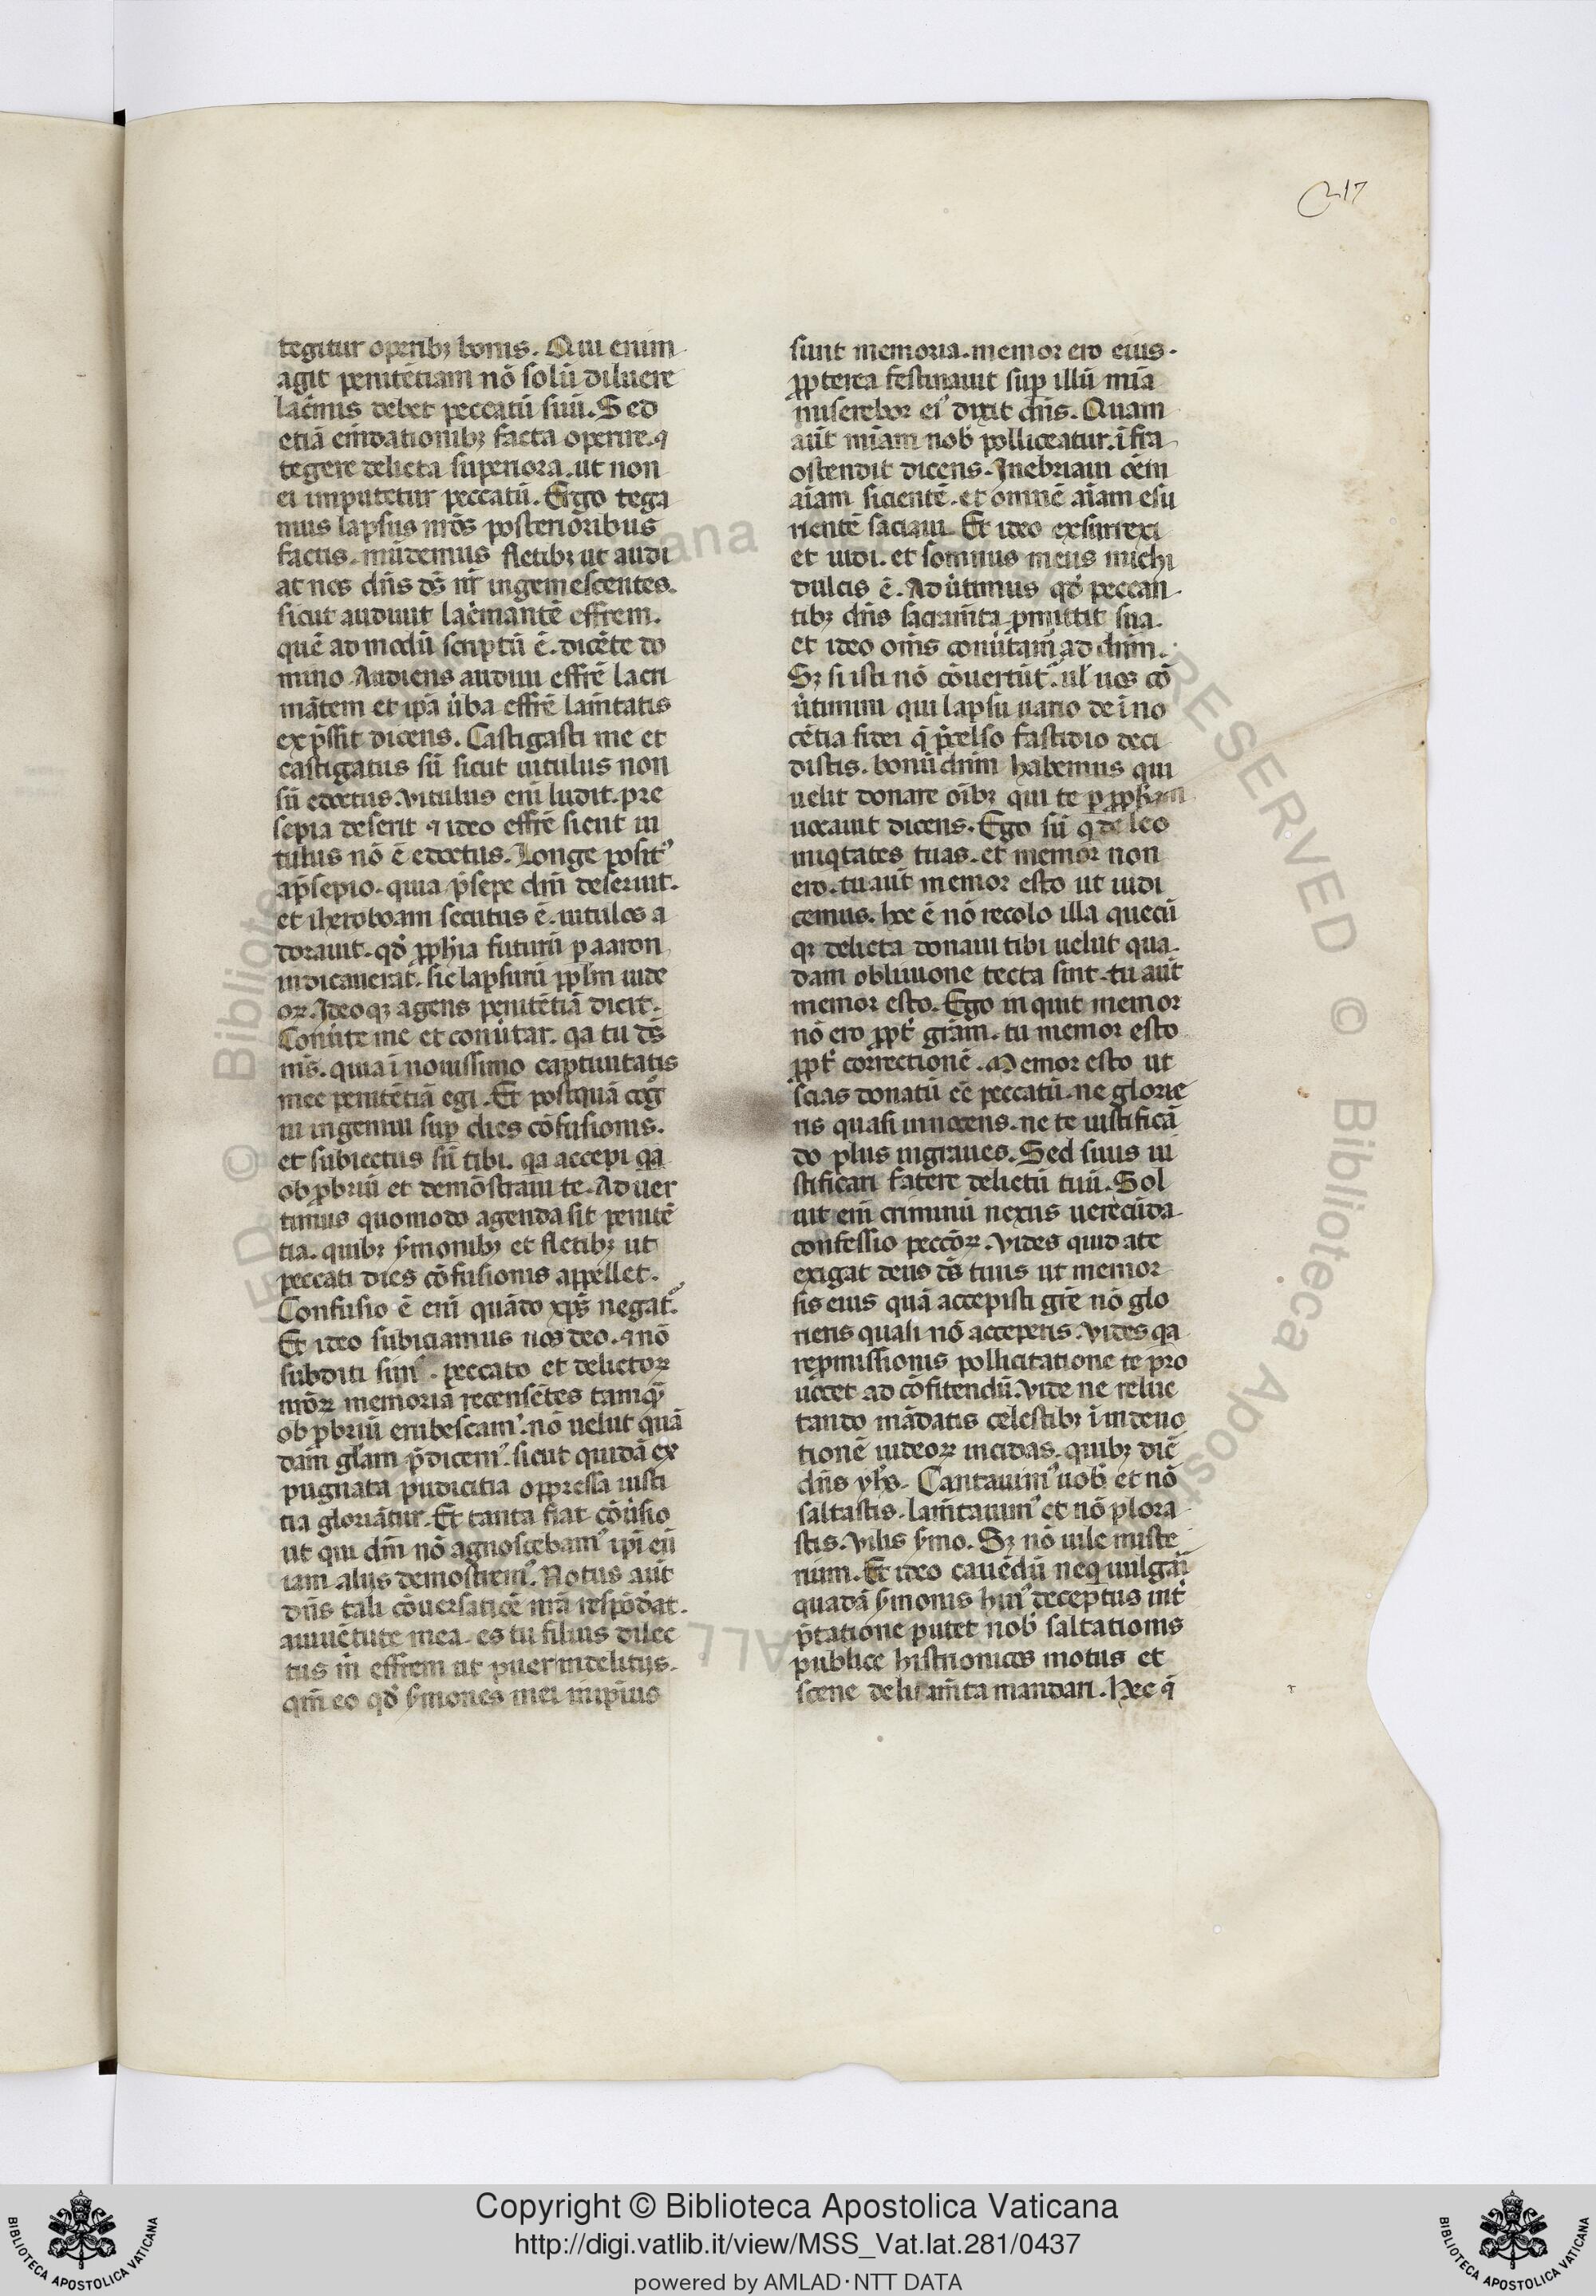 217
tegitur operibꝫ bonis. Qui enim
agit penitētiam nō solū diluere
lac̄mis debet peccatū suū. Sed
etiā em̄dationibꝫ facta operire. ⁊
tegere delicta superiora. ut non
ei imputetur peccatū. Ergo tega
mus lapsus nr̄os posterioribus
factis. mūdemus fletibꝫ ut audi
at nos dn̄s ds̄ nr̄ ingemescentes.
sicut audiuit lac̄mantē effrem.
quē ad modū scriptū ē. dicēte do
mino Audiens audiui effrē lacri
mātem et ip̄a ūba effrē lam̄tatis
exp̄ssit dicens. Castigasti me et
castigatus sū sicut uitulus non
sū edoctus. Vitulus eni ludit. pre
sepia deserit ⁊ ideo effrē sicut ui
tulus nō ē edoctus. Longe positꝰ
a p̄sepio. quia p̄sepe dn̄i deseruit.
et iheroboam secutus ē. uitulos a
dorauit. qd̄ ꝓph̄ia futurū p aaron
indicauerat. sic lapsurū ppl̄m iude
oꝝ. Ideoqꝫ agens penitētiā dicit.
Conūte me et conūtar. qa tu ds̄
ms̄. quia ī nouissimo captiuitatis
mee penitētiā egi. Et postquā cog̃
ui ingemui suꝑ dies cōfusionis.
et subiectus sū tibi. qa accepi qa
obꝓbriū et demōstraui te. Aduer
timus quomodo agenda sit penitē
tia. quibꝫ s̄monibꝫ et fletibꝫ ut
peccati dies cōfusionis appellet.
Confusio ē eni quādo xp̄s negatꝰ.
Et ideo subiciamus nos deo. ⁊ nō
subditi simꝰ. peccato et delictoꝝ
nr̄oꝝ memoriā recensētes tamqᷓ
obꝓbriū erubescamꝰ. nō uelut quā
dam gl̄am p̄dicemꝰ. sicut quidā ex
pugnata pudicitia oppressa iusti
tia gloriātur. Et tanta fiat cōūsio
ut qui dm̄ nō agnoscebamꝰ ip̄i eū
iam alijs demostremꝰ. Notus aūt
dn̄s tali cōuersatiōe nr̄a respōdat.
a iuuētute mea. es tu filius dilec
tus m̄ effrem ut puer in delitijs.
qm̄ eo qd̄ s̄mones mei in ip̄ius
sunt memoria. memor ero eius.
ꝓpterea festinauit suꝑ illū mīa
miserebor eiꝰ dixit dn̄s. Quam
aūt mīam nob̄ polliceatur. īfra
ostendit dicens. Inebriaui oēm
aīam sicientē. et omnē aīam esu
rientē saciaui. Et ideo exsurrexi
et uidi. et somnus meus michi
dulcis ē. Aduūtimus qd̄ peccan
tibꝫ dn̄s sacram̄ta ꝓmittit sua.
et ideo om̄s conūtam̄ ad dn̄m.
Sꝫ si isti nō cōuertūtꝰ. ul̄ uos cō
ūtimini qui lapsu uario de īno
cētia fidei q̄ p̄celso fastidio deci
distis. bonū dn̄m habemus qui
uelit donare oībꝫ qui te ꝑ ꝓph̄am
uocauit dicens. Ego sū q̄ deleo
iniqtates tuas. et memor non
ero. tu aūt memor esto ut iudi
cemus. hoc ē nō recolo illa quecū
qꝫ delicta donaui tibi uelut qua
dam obliuione tecta sint. tu aūt
memor esto. Ego inquit memor
nō ero ꝓpt̄ grām. tu memor esto
ꝓpt̄ correctionē. Memor esto ut
scias donatū eē peccatū. ne glorie
ris quasi innocens. ne te iustificā
do plus ingraues. Sed siuis iu
stificari fatere delictū tuū. Sol
uit eni criminū nexus uerecūda
confessio peccōꝝ. Vides quid a te
exigat deus ds̄ tuus ut memor
sis eius quā accepisti grē nō glo
rieris quasi nō acceperis. Vides qa
repmissionis pollicitatione te pro
uocet ad cōfitendū. Vide ne reluc
tando mādatis celestibꝫ ī indeuo
tionē iudeoꝝ incidas. quibꝫ dic̄
dn̄s yh̄s. Cantauimꝰ uob̄ et nō
saltastis. lam̄tauimꝰ et nō plora
stis. Vilis s̄mo. Sꝫ nō uile miste
rium. Et ideo cauēdū neq̄ uulgari
quadā s̄monis huiꝰ deceptus int̄
p̄tatione putet nob̄ saltationis
publice histrionicos motus et
scene deliram̄ta mandari. Hec q̄
Copyright © Biblioteca Apostolica Vaticana
http://digi.vatlib.it/view/MSS_Vat.lat.281/0437
powered by AMLAD·NTT DATA